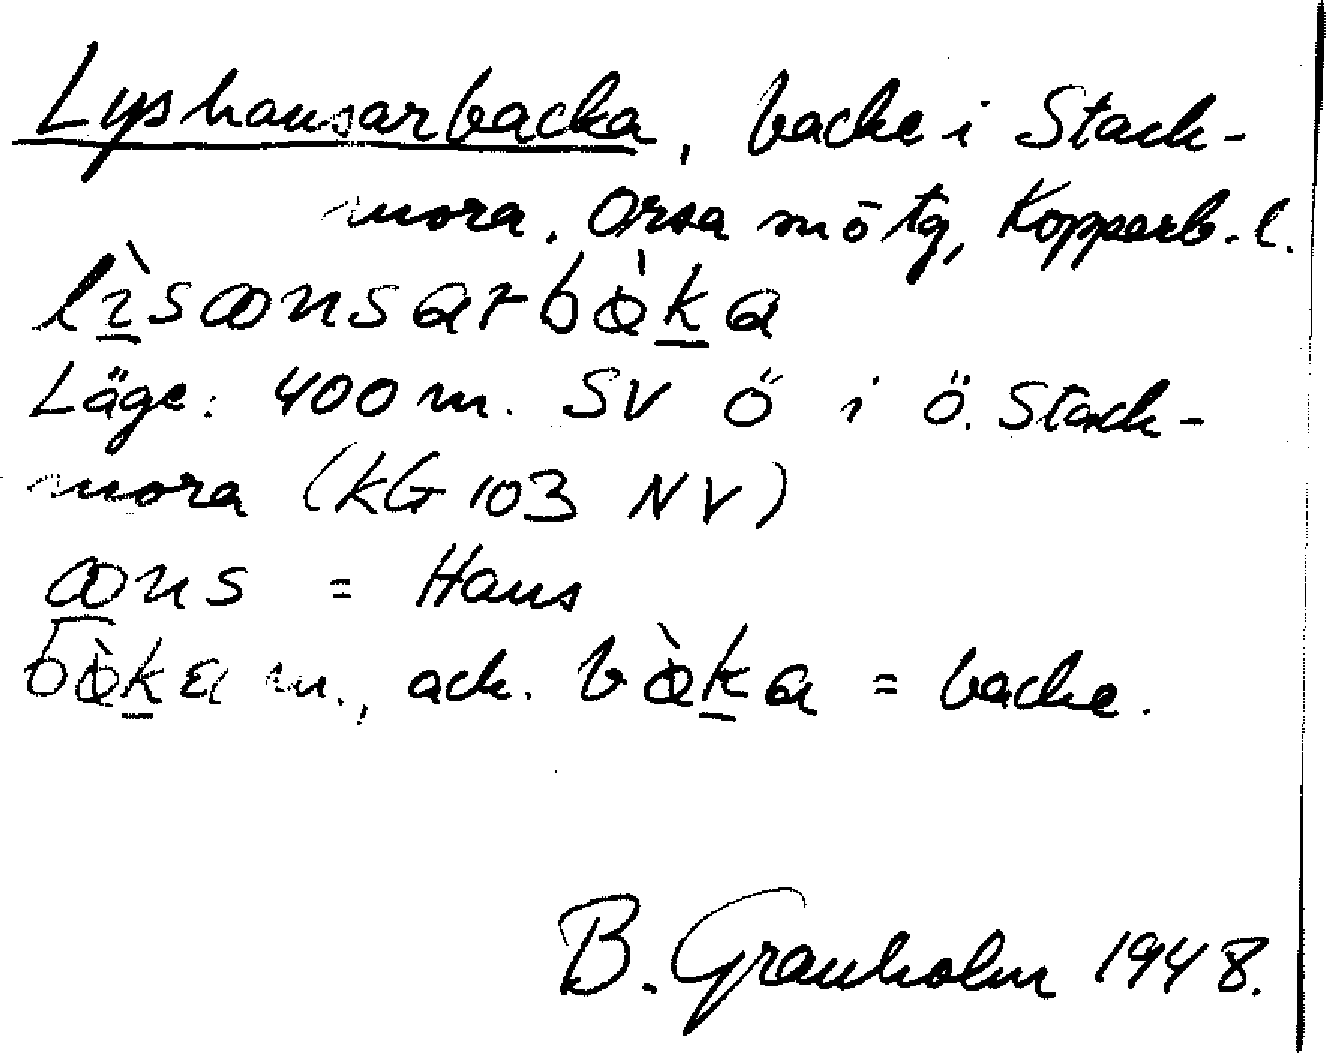 Lyshansarbacka, backe i Stack-
mora. Orsa sn ō tg, Kopparb. l.
lìsaonsarbàka
Läge: 400 m. SV Ö i Ö. Stack-
mora (KG 103 NV)
aons = Hans
bàka m., ack. bàka = backe.
B. Granholm 1948.